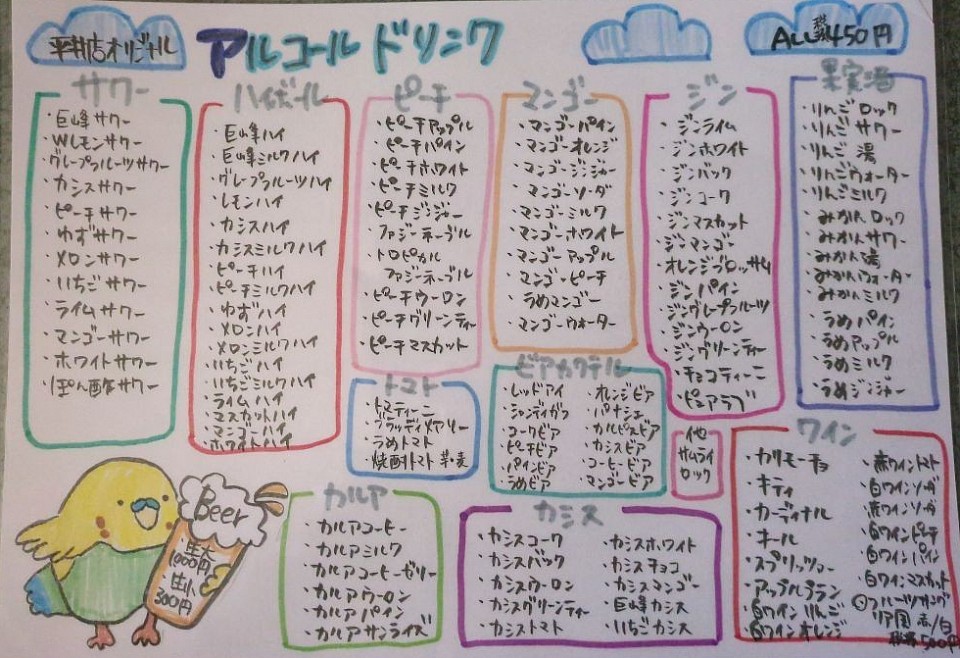 平井店オリジナル
アルコールドリンク
ALL税抜450円
サワー
・巨峰サワー
・Wレモンサワー
・グレープフルーツサワー
・カシスサワー
・ピーチサワー
・ゆずサワー
・メロンサワー
・いちごサワー
・ライムサワー
・マンゴーサワー
・ホワイトサワー
・ぽん酢サワー
ハイボール
・巨峰ハイ
・巨峰ミルクハイ
・グレープフルーツハイ
・レモンハイ
・カシスハイ
・カシスミルクハイ
・ピーチハイ
・ピーチミルクハイ
・ゆずハイ
・メロンハイ
・メロンミルクハイ
・いちごハイ
・いちごミルクハイ
・ライムハイ
・マスカットハイ
・マンゴーハイ
・ホワイトハイ
ピーチ
・ピーチアップル
・ピーチパイン
・ピーチホワイト
・ピーチミルク
・ピーチジンジャー
・ファジーネーブル
・トロピカル
ファジーネーブル
・ピーチウーロン
・ピーチグリーンティー
・ピーチマスカット
マンゴー
・マンゴーパイン
・マンゴーオレンジ
・マンゴージンジャー
・マンゴーソーダ
・マンゴーミルク
・マンゴーホワイト
・マンゴーアップル
・マンゴーピーチ
・うめマンゴー
・マンゴーウォーター
ジン
・ジンライム
・ジンホワイト
・ジンバック
・ジンコーク
・ジンマスカット
・ジンマンゴー
・オレンジブロッサム
・ジンパイン
・ジングレープフルーツ
・ジンウーロン
・ジングリーンティー
・チョコティーニ
・ピュアラブ
果実酒
・りんごロック
・りんごサワー
・りんご湯
・りんごウォーター
・りんごミルク
・みかんロック
・みかんサワー
・みかん湯
・みかんウォーター
・みかんミルク
・うめパイン
・うめアップル
・うめミルク
・うめジンジャー
トマト
・トマティーニ
・ブラッディメアリー
・うめトマト
・焼酎トマト芋・麦
ビアカクテル
・レッドアイ
・シャンディガフ
・コークビア
・ピーチビア
・パインビア
・うめビア
・オレンジビア
・パナシェ
・カルピスビア
・カシスビア
・コーヒービア
・マンゴービア
他
サムライ
ロック
ワイン
・カリモーチョ
・キティ
・カーディナル
・キール
・スプリッツァー
・アップルプラン
・白ワインりんご
・白ワインオレンジ
・赤ワイントマト
・白ワインソーダ
・赤ワインソーダ
・白ワインピーチ
・白ワインパイン
・白ワインマスカット
フルーツサングリア
赤/白
500円
カルア
・カルアコーヒー
・カルアミルク
・カルアコーヒーゼリー
・カルアウーロン
・カルアパイン
・カルアサンライズ
カシス
・カシスコーク
・カシスバック
・カシスウーロン
・カシスグリーンティー
・カシストマト
・カシスホワイト
・カシスチョコ
・カシスマンゴー
・巨峰カシス
・いちごカシス
Beer
・生大
1000円
・生小
300円